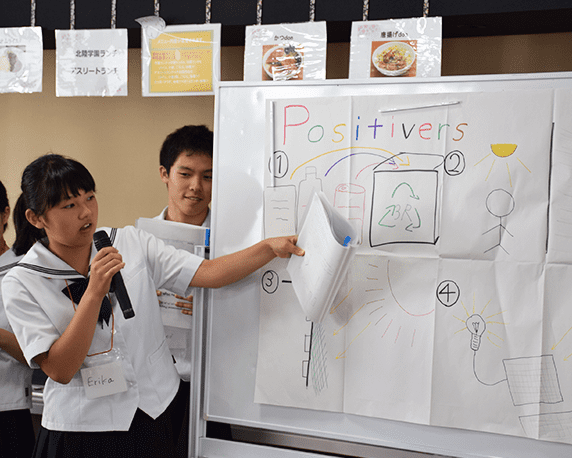 北陸学園ランチ
アスリートランチ
かつdon
唐揚げdon
Positivers
①
②
BR
③
④
Erika